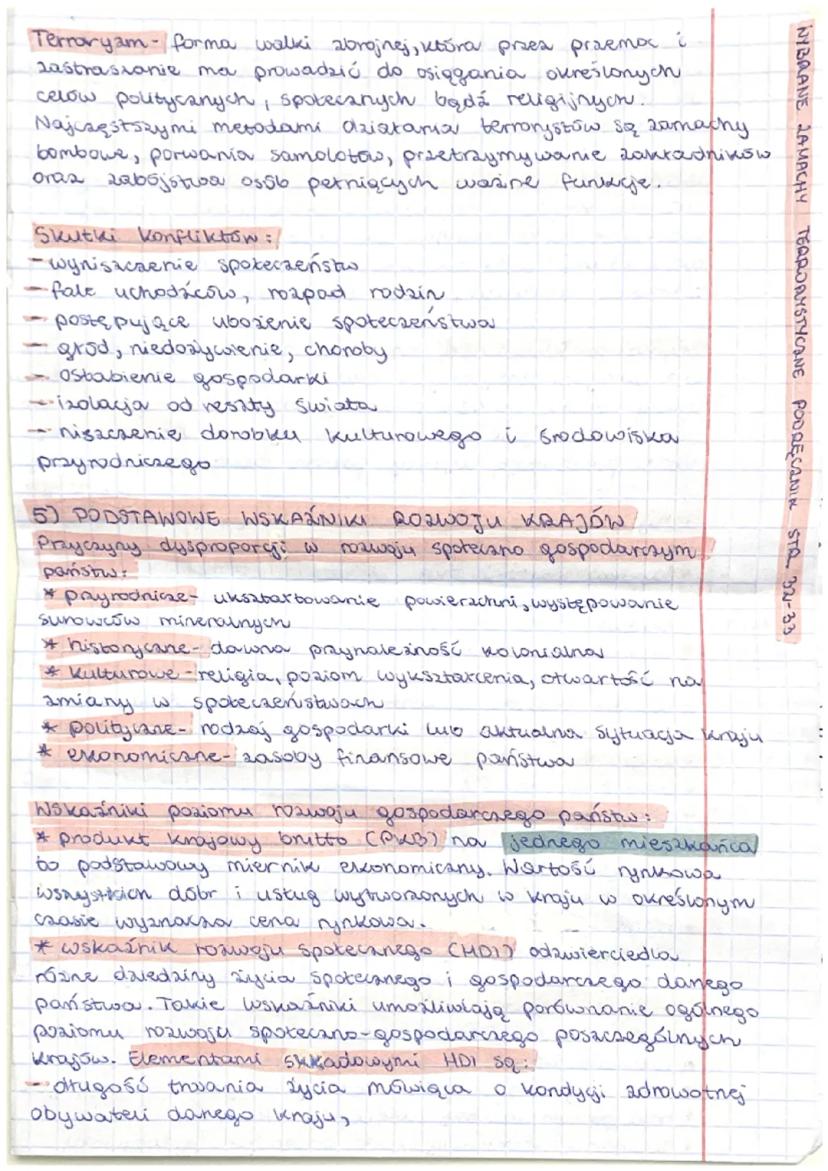 Terroryzm - forma walki zbrojnej, która przez przemoc i
zastraszanie ma prowadzić do osiągania określonych
celów politycznych, społecznych bądź religijnych.
Najczęstszymi metodami działania terrorystów są zamachy
bombowe, porwania samolotów, przetrzymywanie zakładników
oraz zabójstwa osób pełniących ważne funkcje.
Skutki konfliktów:
- wyniszczenie społeczeństw
- fale uchodźców, rozpad rodzin
- postępujące ubożenie społeczeństwa
- głód, niedożywienie, choroby
- osłabienie gospodarki
- izolacja od reszty świata
- niszczenie dorobku kulturowego i środowiska
przyrodniczego
5) PODSTAWOWE WSKAŹNIKI ROZWOJU KRAJÓW
Przyczyny dysproporcji w rozwoju społeczno gospodarczym
państw:
* przyrodnicze - ukształtowanie powierzchni, występowanie
surowców mineralnych
* historyczne - dawna przynależność kolonialna
* kulturowe - religia, poziom wykształcenia, otwartość na
zmiany w społeczeństwach
* polityczne - rodzaj gospodarki lub aktualna sytuacja kraju
* ekonomiczne - zasoby finansowe państwa
Wskaźniki poziomu rozwoju gospodarczego państw:
* produkt krajowy brutto (PKB) na jednego mieszkańca
to podstawowy miernik ekonomiczny. Wartość rynkowa
wszystkich dóbr i usług wytworzonych w kraju w określonym
czasie wyznacza cena rynkowa.
* wskaźnik rozwoju społecznego (HDI) odzwierciedla
różne dziedziny życia społecznego i gospodarczego danego
państwa. Takie wskaźniki umożliwiają porównanie ogólnego
poziomu rozwoju społeczno-gospodarczego poszczególnych
krajów. Elementami składowymi HDI są:
- długość trwania życia mówiąca o kondycji zdrowotnej
obywateli danego kraju,
WYBRANE ZAMACHY TERRORYSTYCZNE PODRĘCZNIK STR 32-33